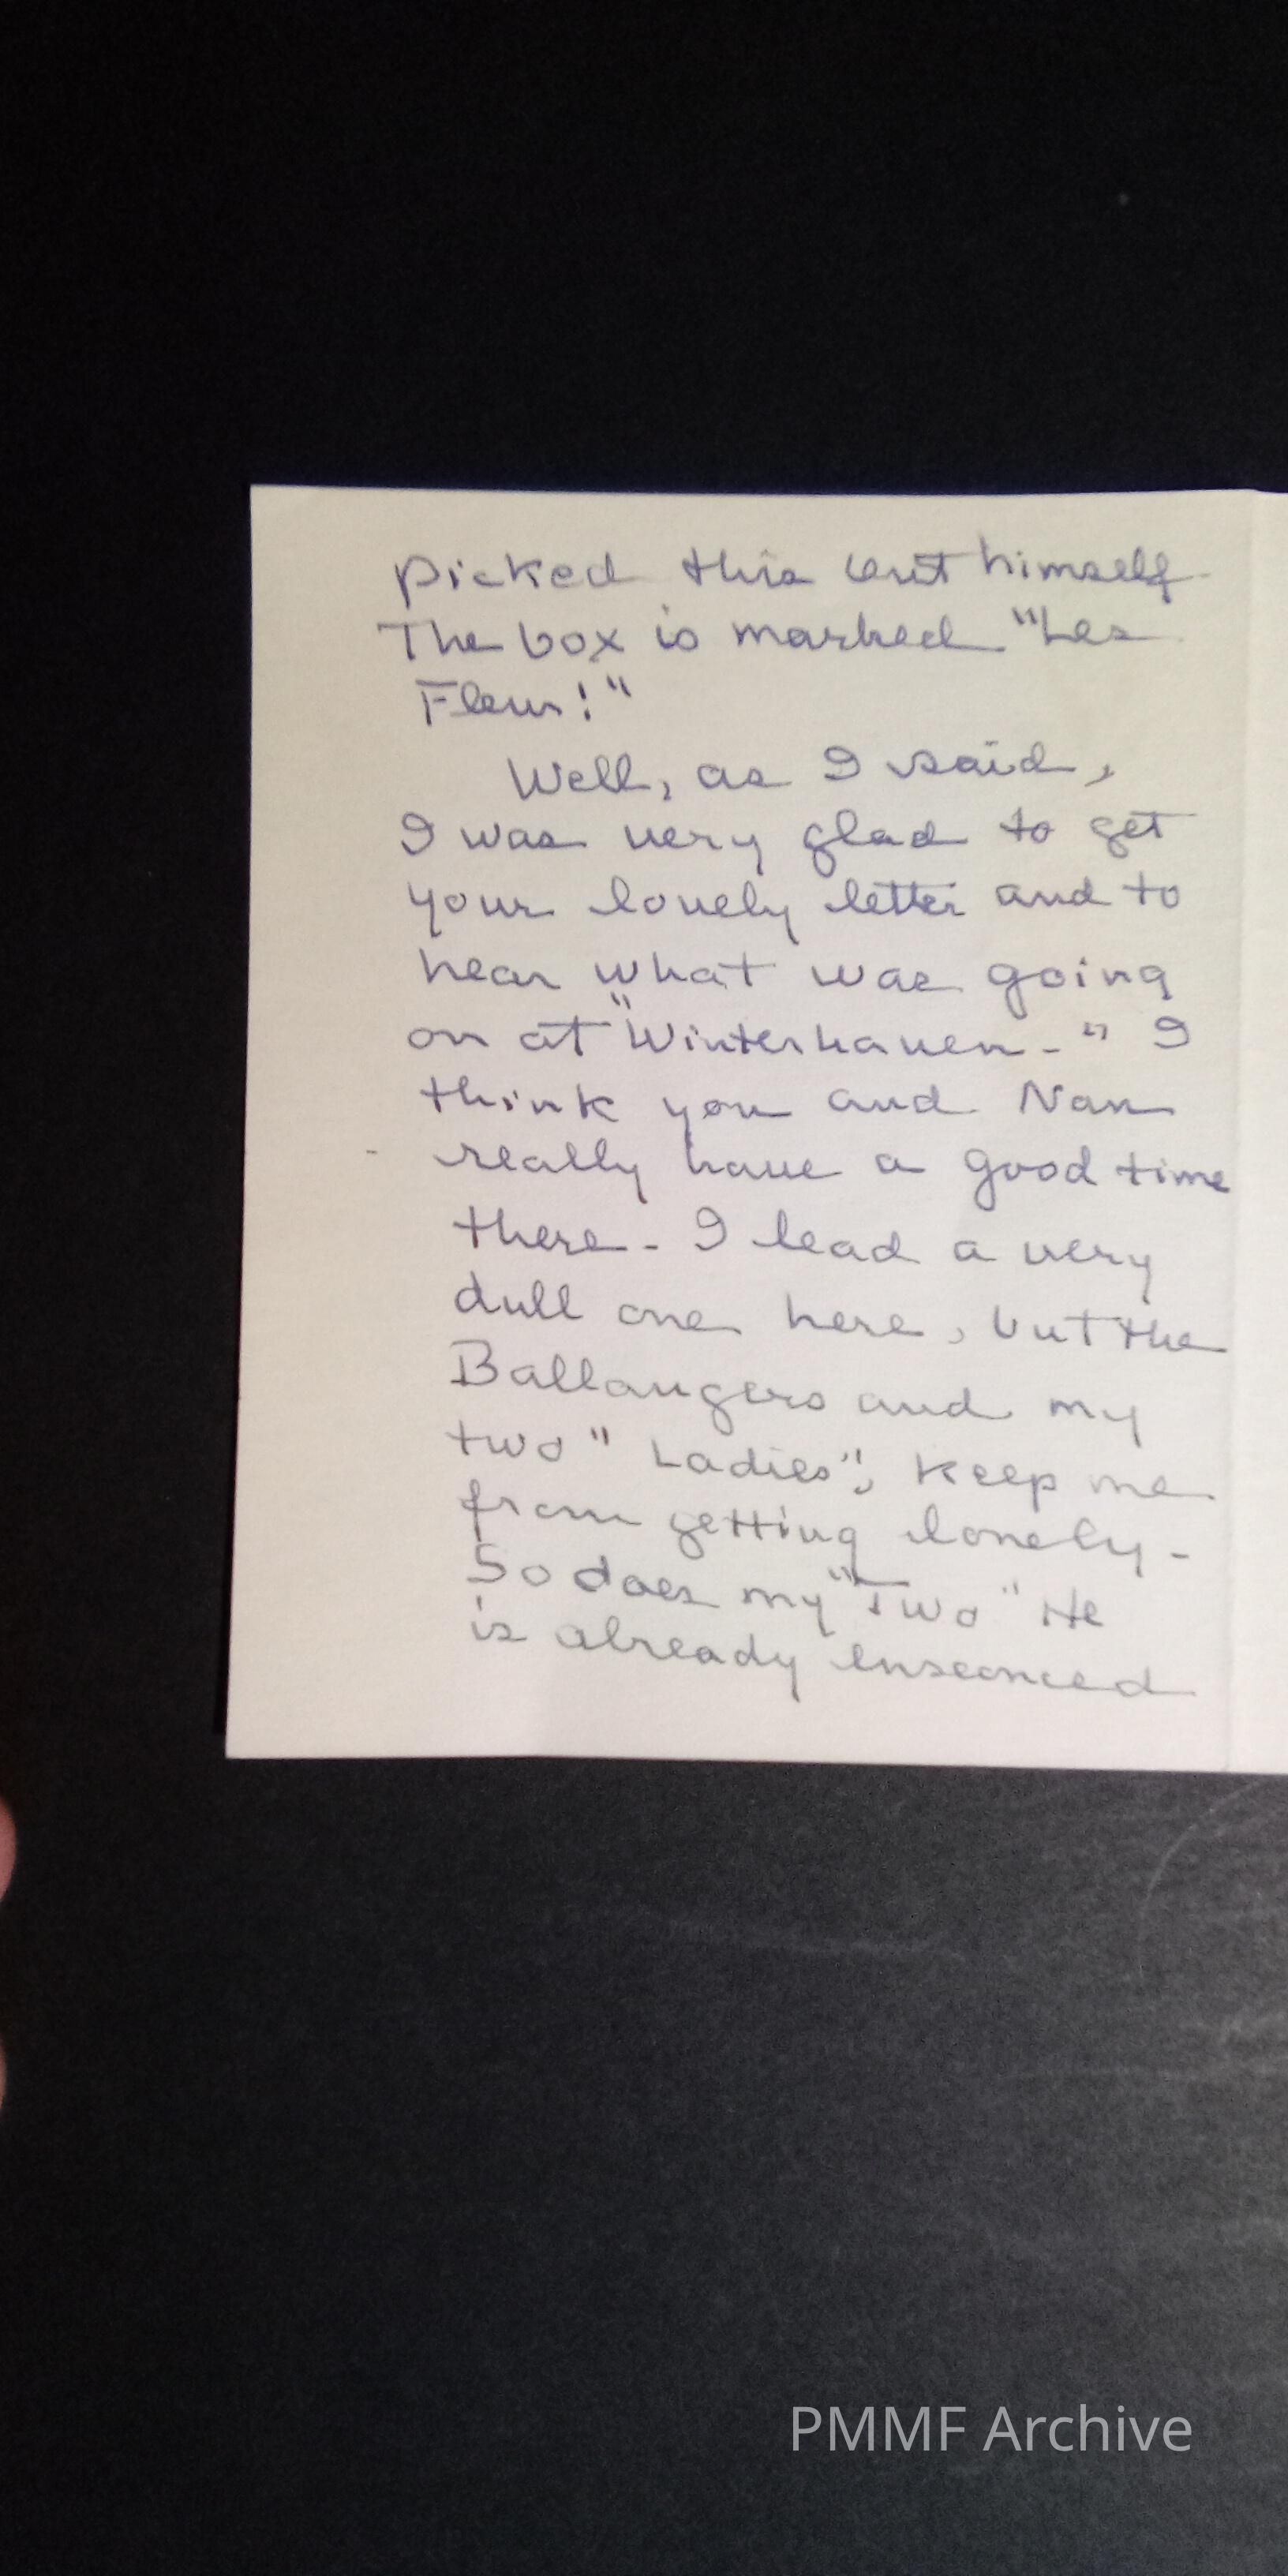 picked this out himself
The box is marked "Les
Fleur!"
Well, as I said,
I was very glad to get
your lovely letter and to
hear what was going
on at "Winterhaven-" I
think you and Nan
really have a good time
there - I lead a very
dull one here, but the
Ballangers and my
two "Ladies", keep me
from getting lonely -
So does my "Two" He
is already ensconced
PMMF Archive